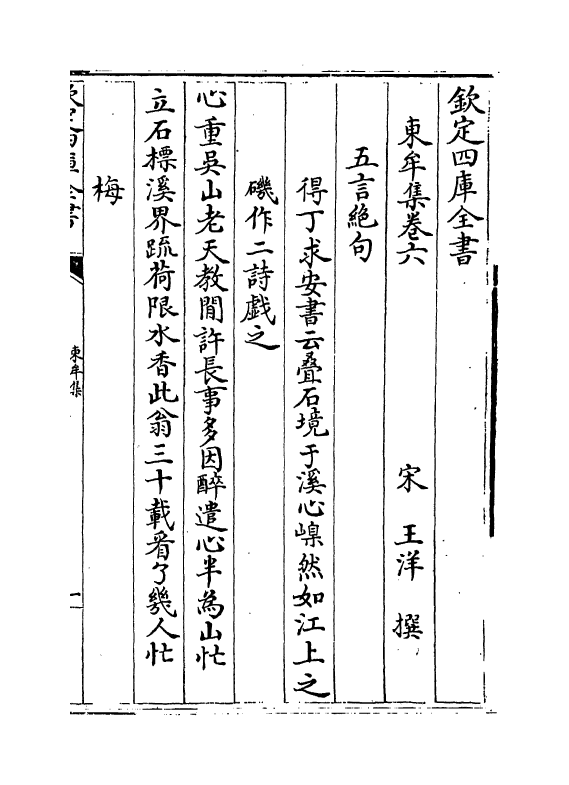 欽定四庫全書
東牟集卷六
宋　王洋　撰
五言絶句
得丁求安書云叠石境于溪心嵲然如江上之
磯作二詩戯之
心重吳山老天教閒許長事多因醉遣心半為山忙
立石標溪界疏荷限水香此翁三十載看了幾人忙
梅
欽定四庫全書
東牟集
一